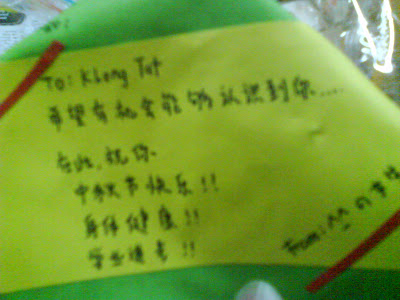 To: Khong Tat
希望有机会能够认识到你.....
在此,祝你
中秋节快乐!!
身体健康!!
学业进步!!
From: ^^の